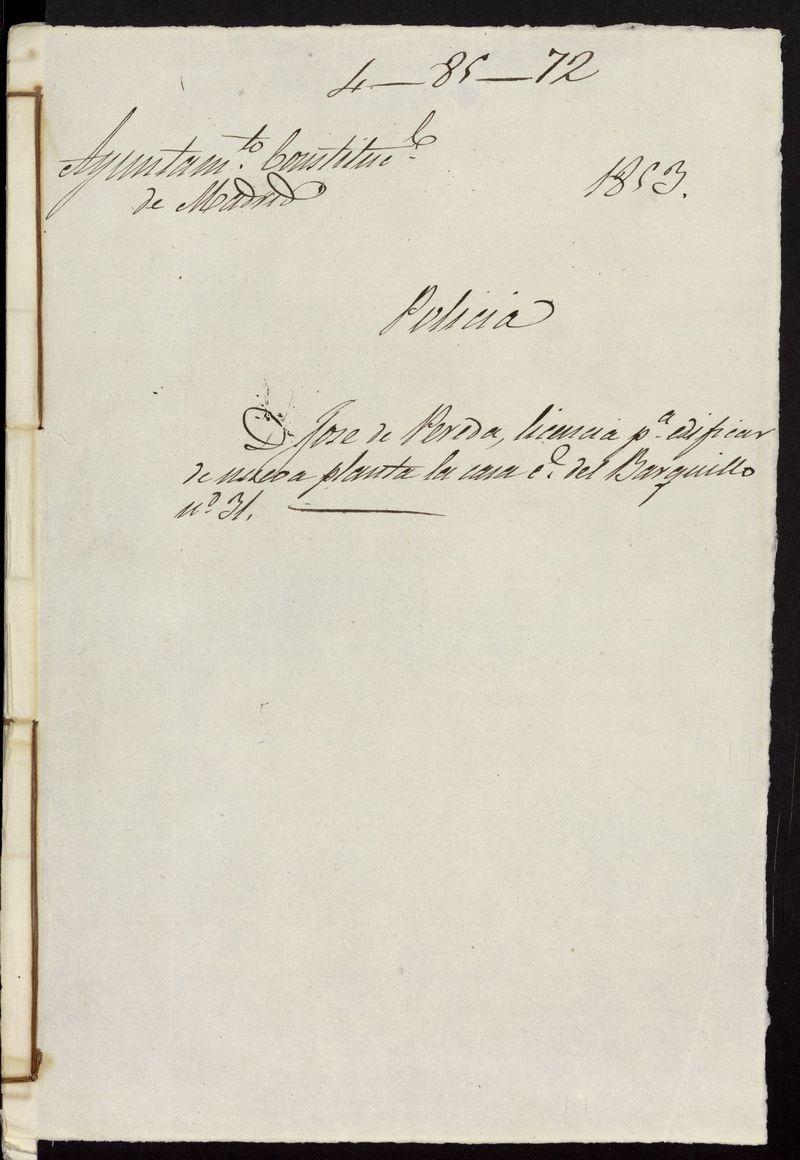 4—85—72
Ayuntam.to Constituc.l
de Madrid
1853.
Policia
D. Jose de Pereda, licencia p.a edificar
de nueva planta la casa c.e del Barquillo
n.o 31.